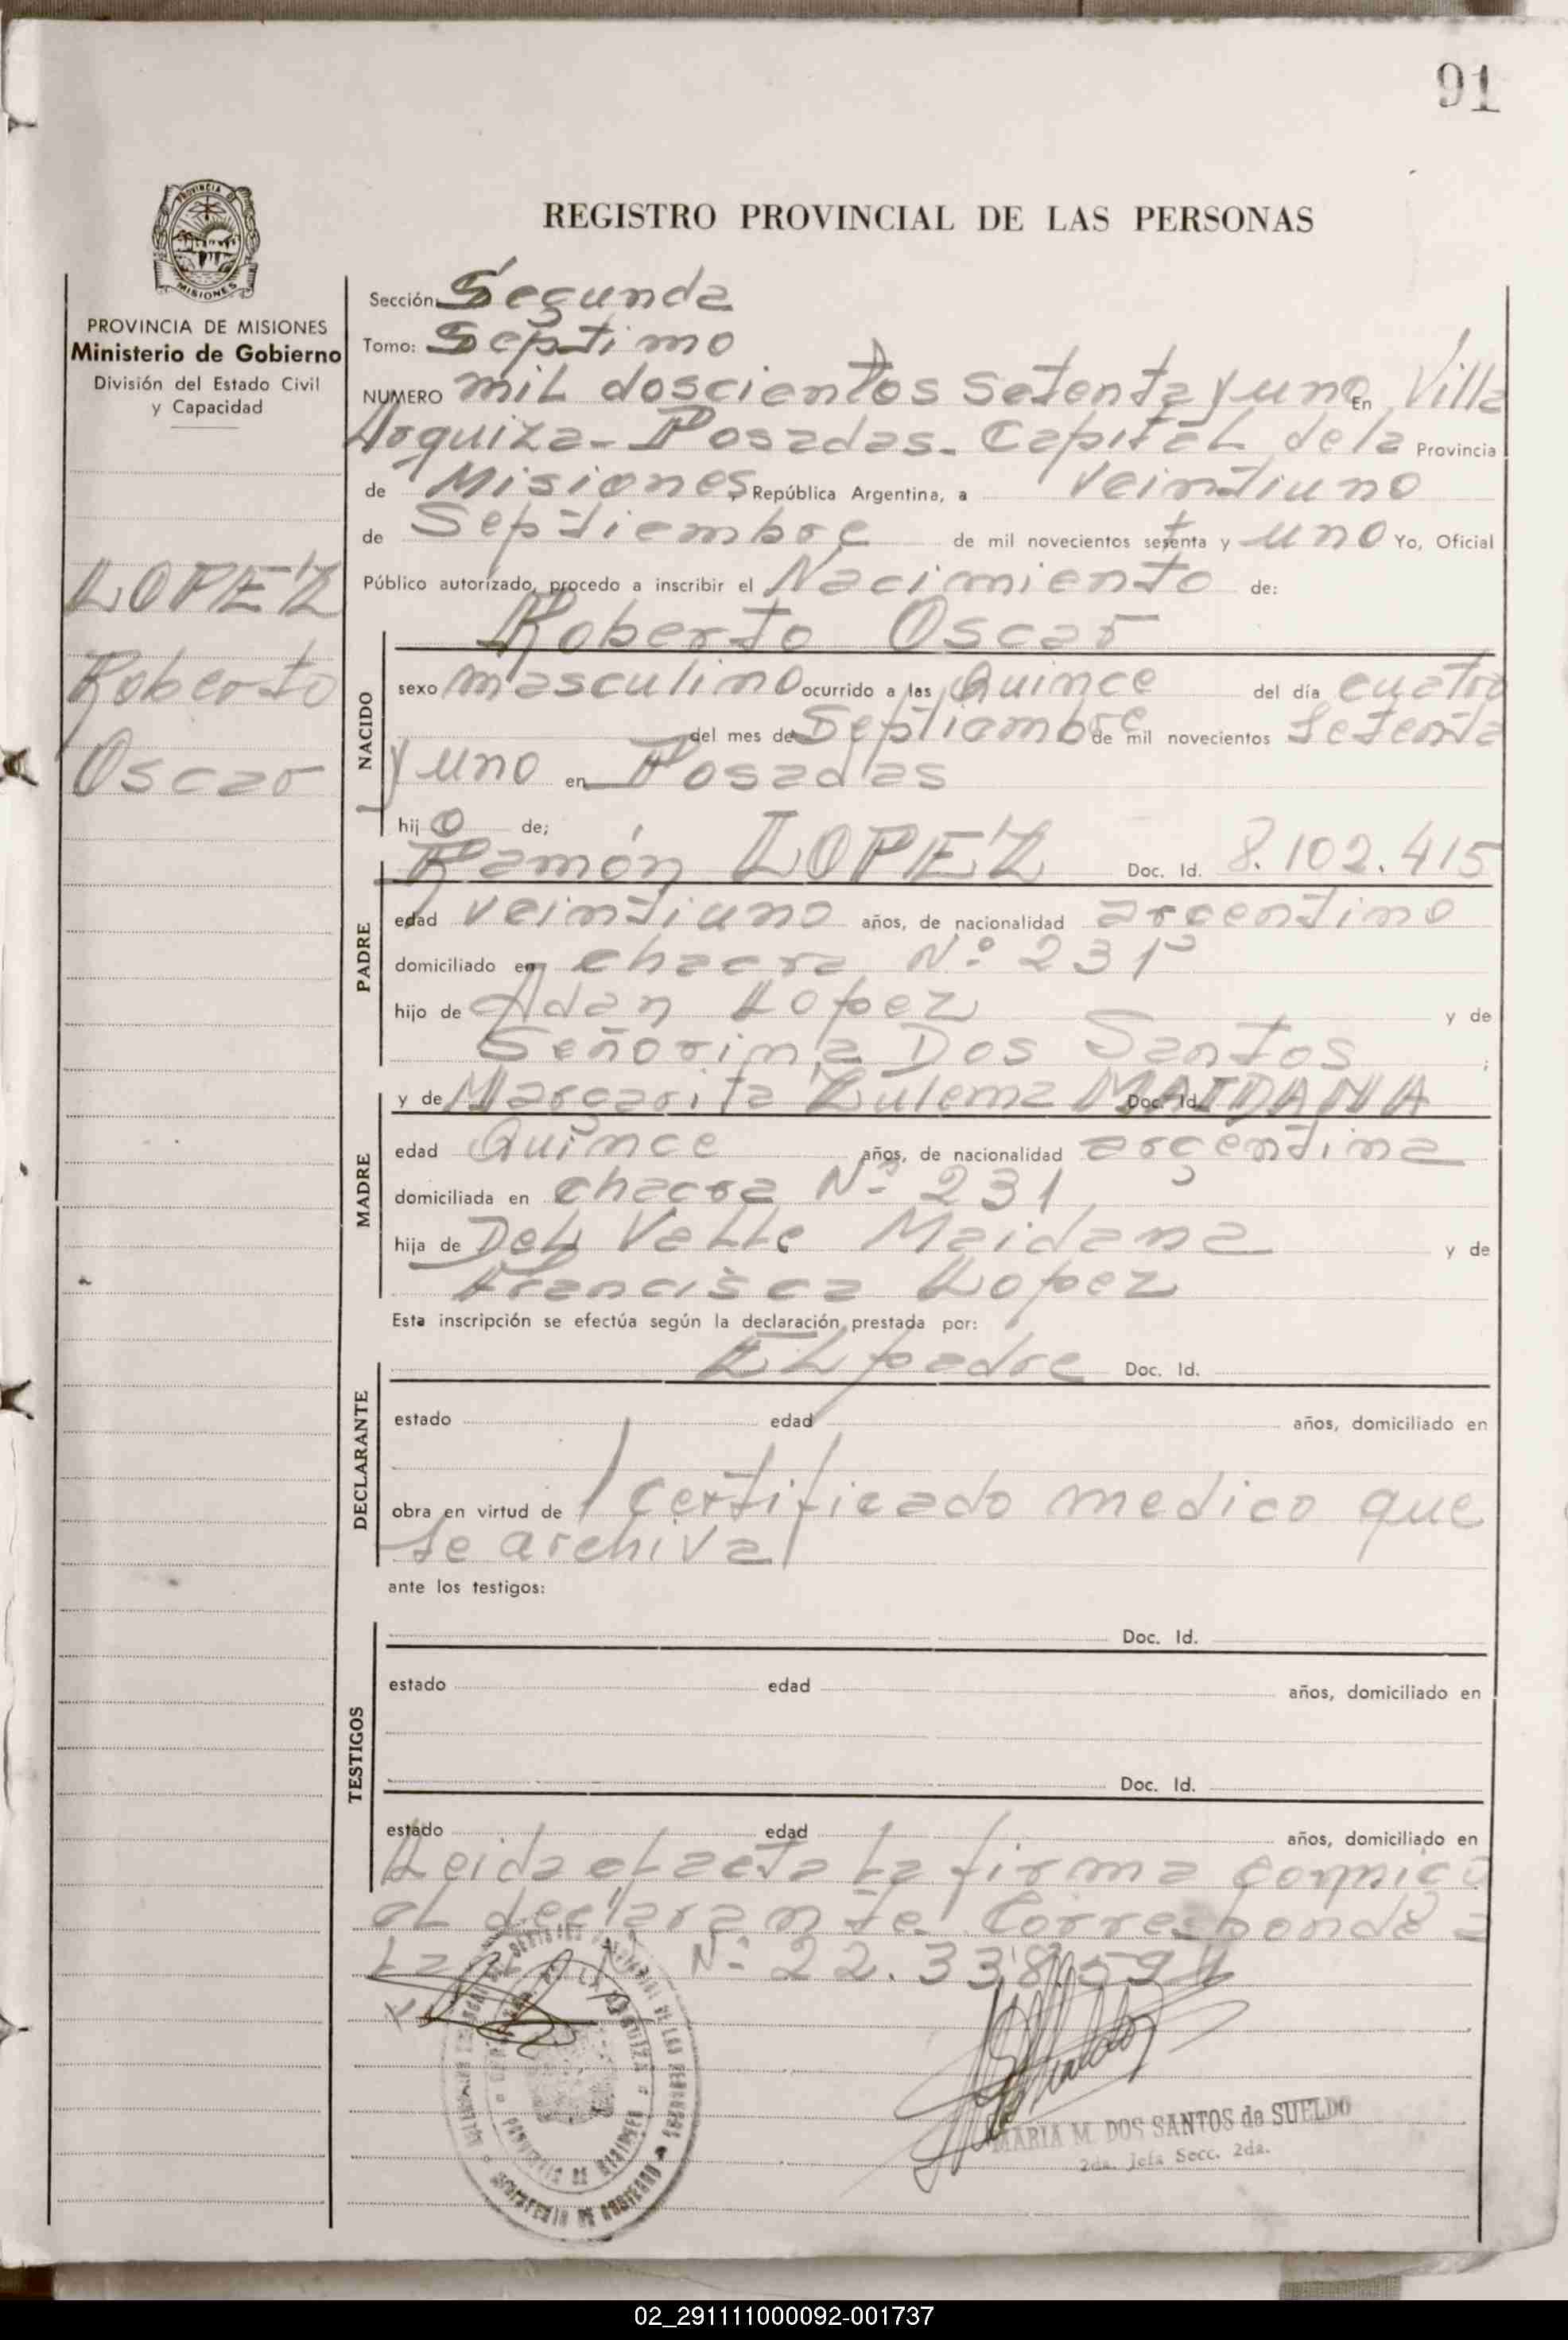 91
REGISTRO PROVINCIAL DE LAS PERSONAS
PROVINCIA DE MISIONES
Ministerio de Gobierno
División del Estado Civil
y Capacidad
LOPEZ
Roberto
Oscar
Sección: Segunda
Tomo: Septimo
NUMERO mil doscientos setenta y uno En Villa
Urquiza - Posadas - Capital de la Provincia
de Misiones, República Argentina, a veintiuno
de Septiembre de mil novecientos setenta y uno Yo, Oficial
Público autorizado, procedo a inscribir el Nacimiento de:
Roberto Oscar
NACIDO
sexo masculino ocurrido a las Quince del día cuatro
del mes de Septiembre de mil novecientos setenta
y uno en Posadas
hijo de;
Ramón LOPEZ Doc. Id. 8.102.415
PADRE
edad veintiuno años, de nacionalidad argentino
domiciliado en chacra Nº 231
hijo de Adan Lopez y de
Señorina Dos Santos ;
y de Margarita Zulema MAIDANA Doc. Id.
MADRE
edad Quince años, de nacionalidad argentina
domiciliada en chacra Nº 231
hija de Del Valle Maidana y de
Francisca Lopez
Esta inscripción se efectúa según la declaración prestada por:
El padre Doc. Id.
DECLARANTE
estado edad años, domiciliado en
obra en virtud de certificado medico que
se archiva
ante los testigos:
Doc. Id.
TESTIGOS
estado edad años, domiciliado en
Doc. Id.
estado edad años, domiciliado en
Leida el acta la firma conmigo
el declarante. Corresponde a
La Nº 22.338.594
MARIA M. DOS SANTOS de SUELDO
2da. Jefa Secc. 2da.
PROVINCIA DE MISIONES
MINISTERIO DE GOBIERNO
02_291111000092-001737